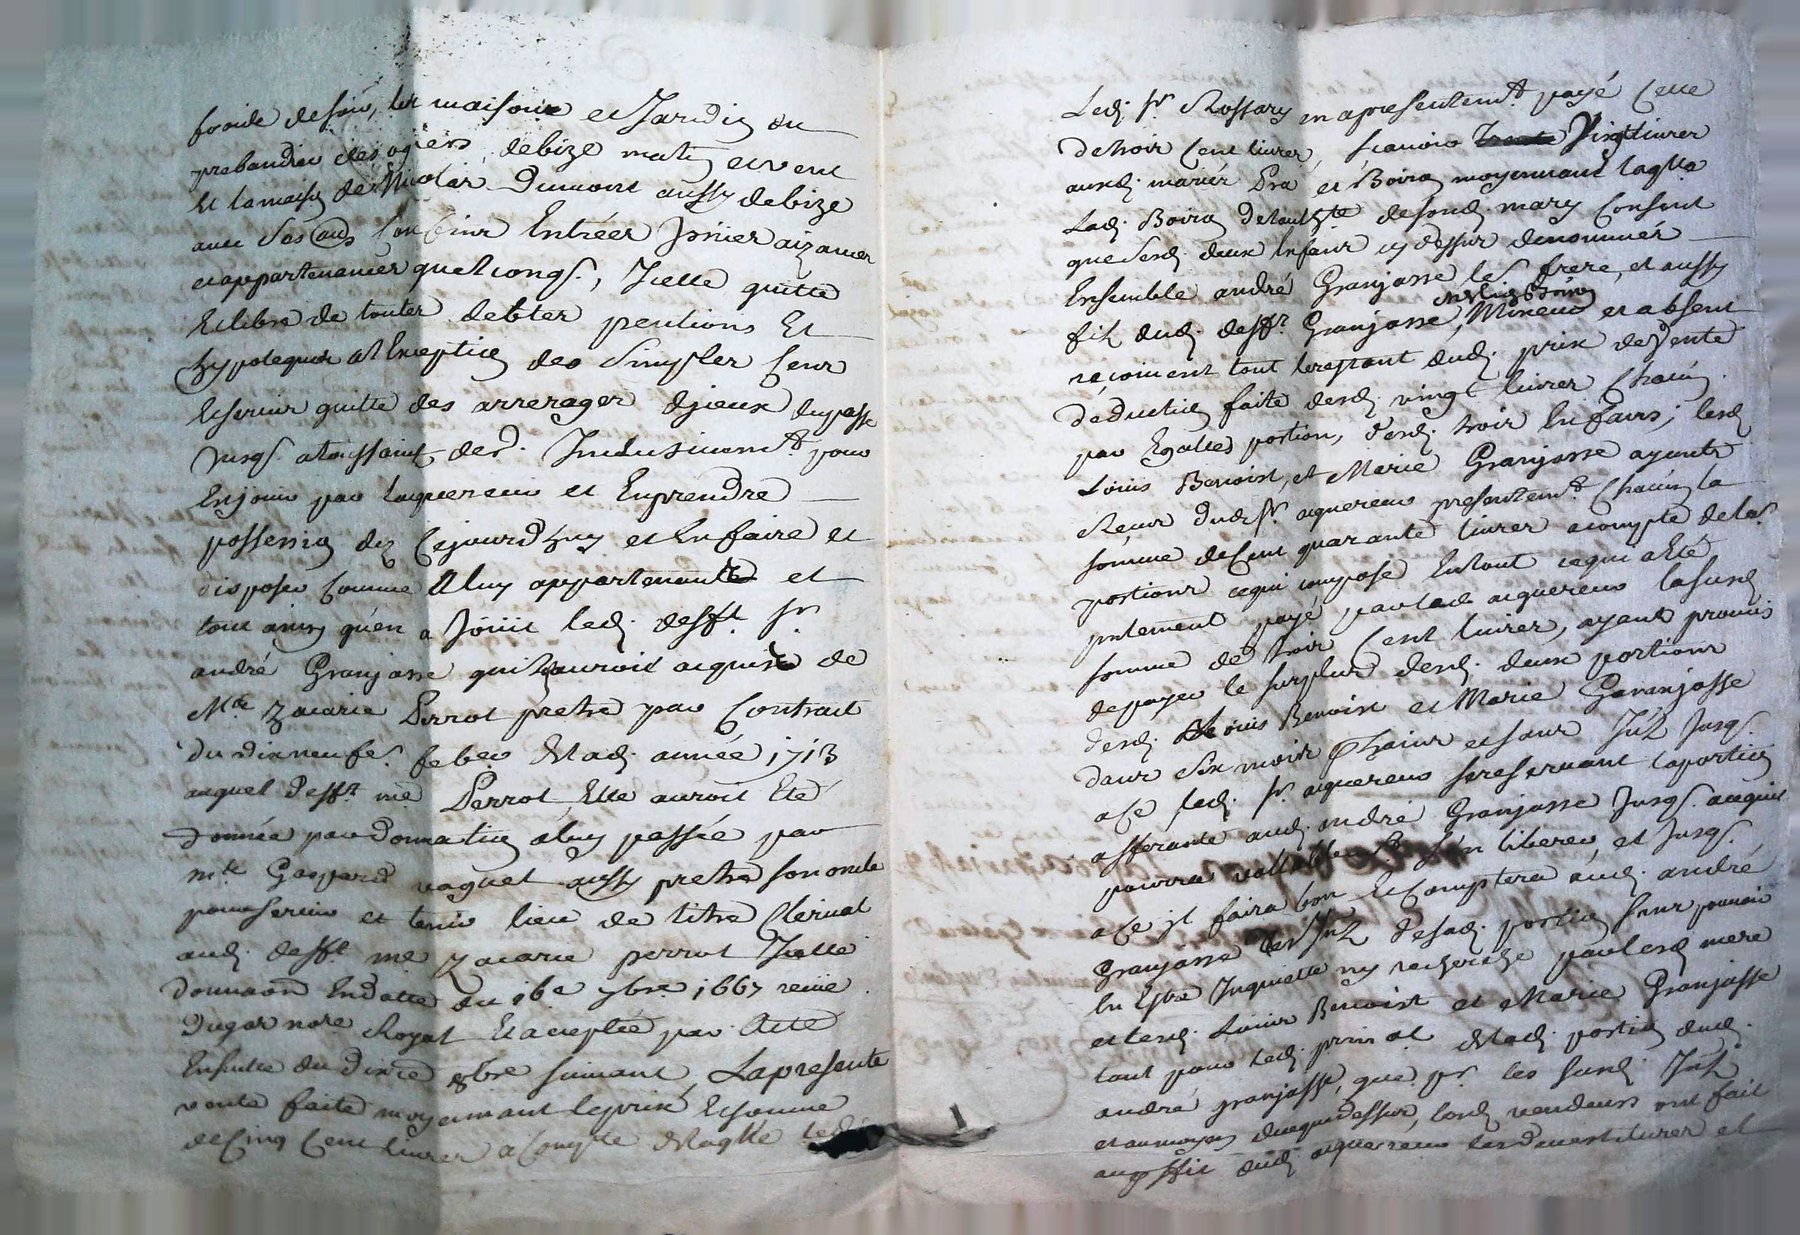 froide de soir, les maisons et Jardin du
prebandier des ogiers, debize matin et vent
et la maison de Nicolas Dumont aussy de bize
avec ses confins Entrées Issües aizances
et appartenances quelconqs., Icelle quitte
et libre de toutes debtes pentions et
hypoteques a l'exception des simples cens
et servis quitte des arrerages d'jceux du passé
jusqs. a toussaint der. Inclusivemt. pour
En jouir par l'aquereur et En prendre
possession dez Cejourd'huy et En faire et
disposer comme a luy appartenante et
tout ainsy qu'en a Joüit led. defft. sr.
andré Granjasse qui l'auroit acquise de
Me. Zacarie Perrot pretre par Contrat
du dix neufe. feber de lad. année 1713
auquel defft. me Perrot Elle auroit Eté
donnée par donnation a luy passée par
me. Gaspard vaguet aussy pretre son oncle
pour servir et tenir lieu de titre Clerical
aud. defft. me Zacarie perrot Icelle
donnaon En datte du 16e 7bre 1667 reçüe
Dugar nore Royal et aceptée par Acte
Ensuite du dixe 8bre suivant, La presente
vente faite moyennant le prix et somme
de Cinq Cent livres a Compte de laqlle led.
Led. sr. Rossary en a presentemt. payé Celle
de trois Cent livres, scavoir Vingt livres
auxd. mariés Pra et Boiron moyennant laqlle
Lad. Boiron de l'authte de sond. mary Consent
que sesd. deux Enfans cy dessus denommés
Ensemble andré Granjasse les. frere, et aussy
fils dud. defft. Granjasse, Mineur et absent
reçoivent tout le restant dud. prix de Vente
deduction faite desd. vingt livres Chacun
par Egalles portion, desd. trois Enfans; lesd.
Louis Benoist, et Marie Granjasse ayants
Receu dud. sr. aquereur presentemt. Chacun la
somme de Cent quarante livres a compte de leurs
portions ce qui compose En tout ce qui a Eté
pntement payé par led. aquereur la susd.
somme de trois Cent livres, ayant promis
de payer le surplus desd. deux portions
desd. Louis Benoist et Marie Granjasse
dans six mois prochains et sans Int. Jusqs.
a Ce led. sr. aquereur se reservant la portion
afferante aud. andré Granjasse Jusqs. a ce qu'il
pourra vallablemt. s'en liberer, et Jusqs.
a Ce jl faira bon et Comptera aud. andré
Granjasse les Int. de sad. portion sans pouvoir
En Estre Inquietté ny recherché par lesd. mere
et lesd. Louis Benoist et Marie Granjasse
tant pour led. prinal de lad. portion dud.
andré granjasse, que pr. les susd. Int.
et au moyen de ce que dessus, lesd. vendeurs ont fait
au proffit dud. aquereur les devestitures et